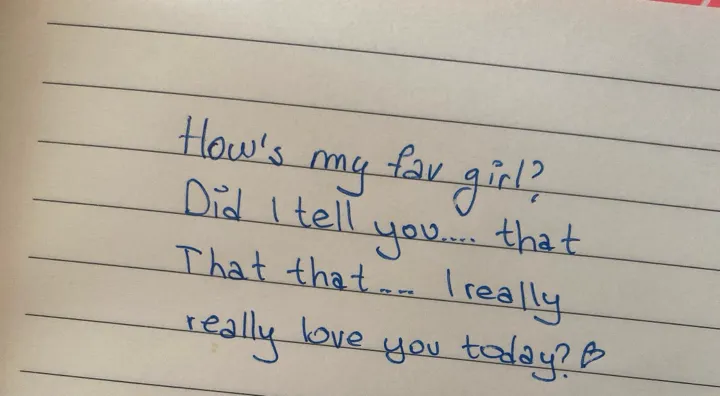 How's my fav girl?
Did I tell you.... that
That that... I really
really love you today? ♡